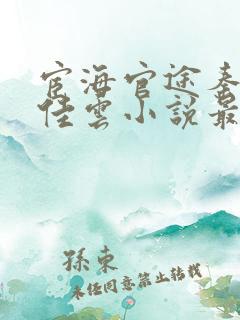 宦海官途秦
佳雲小說最
孫東
未經同意禁止轉載